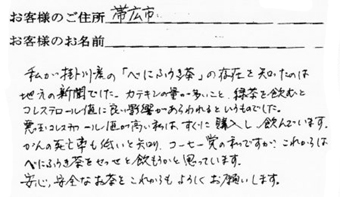 お客様のご住所 帯広市
お客様のお名前
私が掛川産の「べにふうき茶」の存在を知ったのは
地元の新聞でした。カテキンの量が多いこと、緑茶を飲むと
コレステロール値に良い影響があらわれるというものでした。
悪玉コレステロール値が高い私は、すぐに購入し飲んでいます。
がんの死亡率も低いと知り、コーヒー党の私ですが、これからは
べにふうき茶をせっせと飲もうかと思っています。
安心、安全なお茶をこれからもよろしくお願いします。